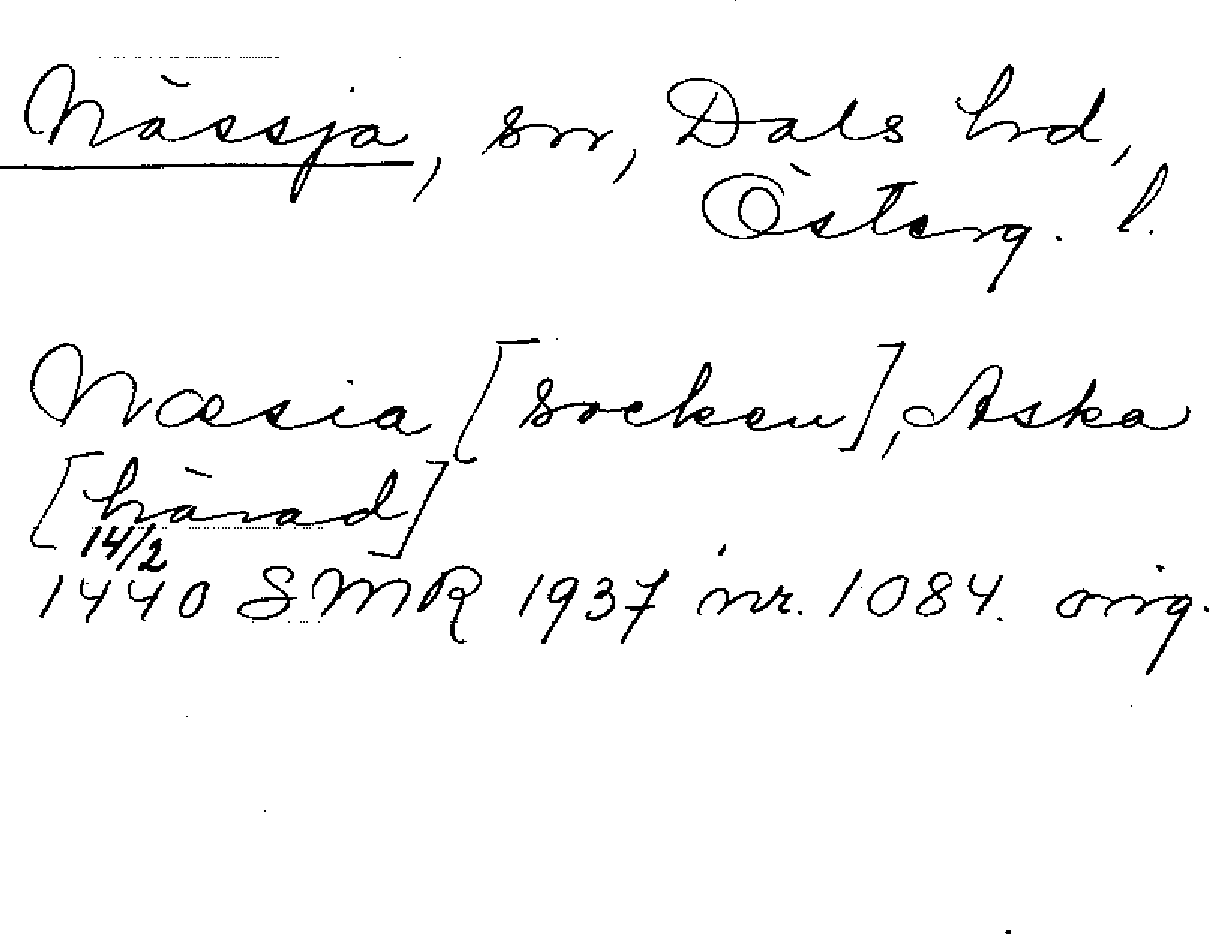 Nässja, sn, Dals hd,
Österg. l.
Næsia [socken], Aska
[härad]
14/2
1440 SMR 1937 nr. 1084. orig.